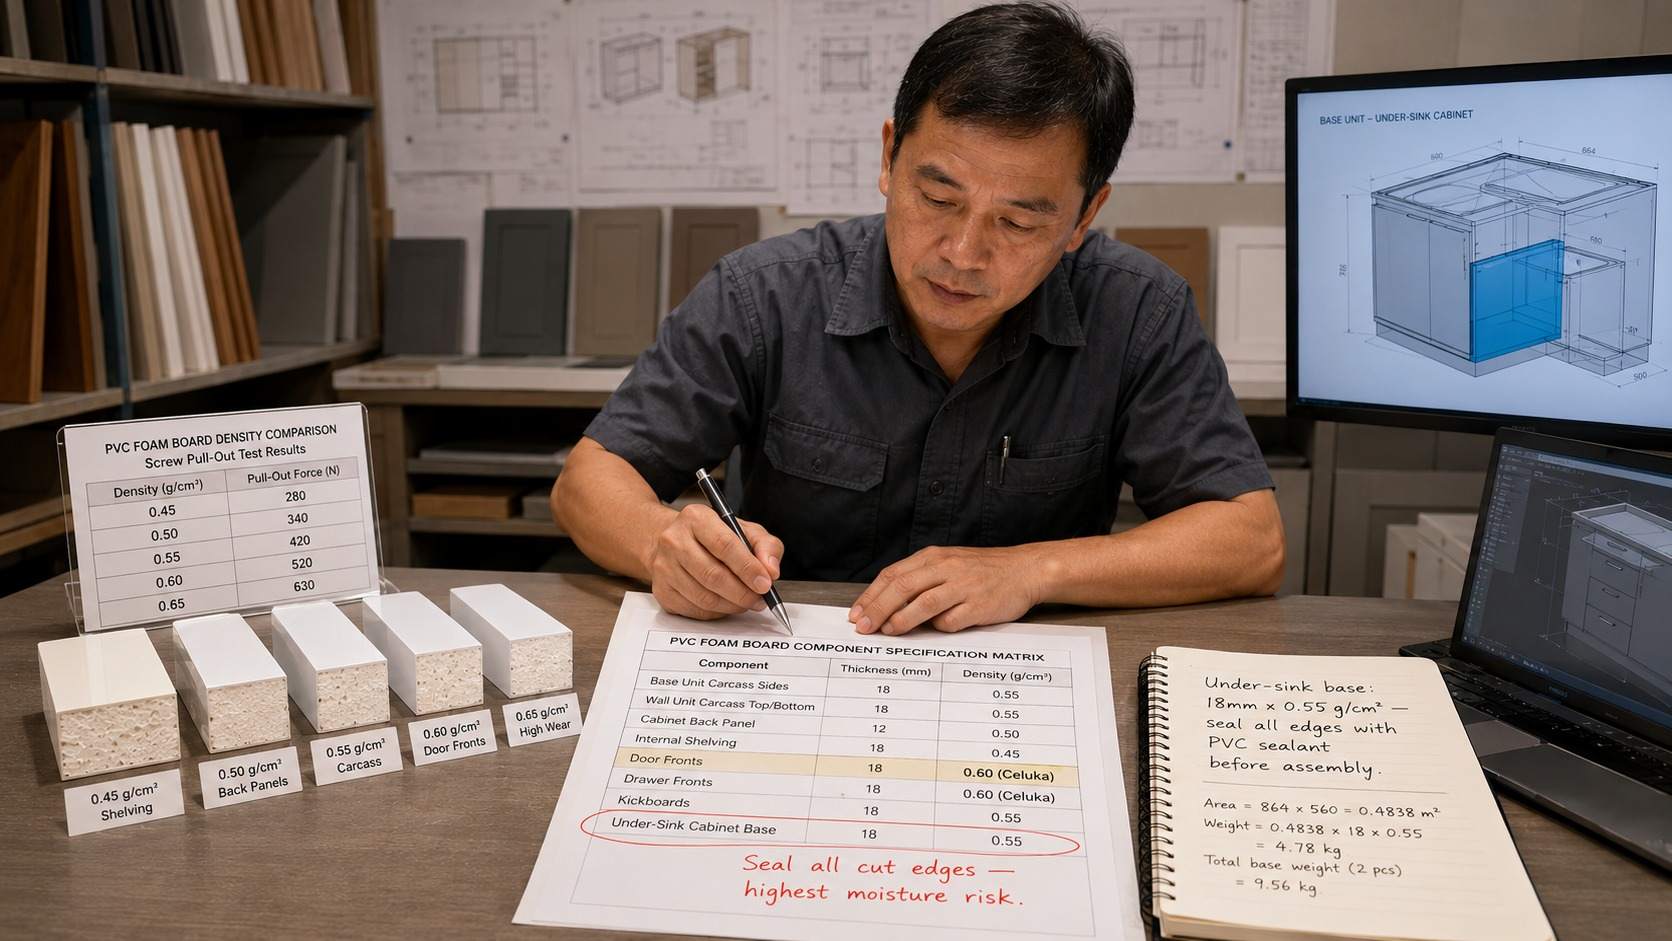 PVC FOAM BOARD DENSITY COMPARISON
Screw Pull-Out Test Results
Density (g/cm³) Pull-Out Force (N)
0.45 280
0.50 340
0.55 420
0.60 520
0.65 630
0.45 g/cm³
Shelving
0.50 g/cm³
Back Panels
0.55 g/cm³
Carcass
0.60 g/cm³
Door Fronts
0.65 g/cm³
High Wear
PVC FOAM BOARD COMPONENT SPECIFICATION MATRIX
Component Thickness (mm) Density (g/cm³)
Base Unit Carcass Sides 18 0.55
Wall Unit Carcass Top/Bottom 18 0.55
Cabinet Back Panel 12 0.50
Internal Shelving 18 0.45
Door Fronts 18 0.60 (Celuka)
Drawer Fronts 18 0.60 (Celuka)
Kickboards 18 0.55
Under-Sink Cabinet Base 18 0.55
Seal all cut edges —
highest moisture risk.
BASE UNIT – UNDER-SINK CABINET
864
500
Under-sink base:
18mm x 0.55 g/cm³ —
seal all edges with
PVC sealant
before assembly.
Area = 864 × 560 = 0.4838 m²
Weight = 0.4838 × 18 × 0.55
= 4.78 kg
Total base weight (2 pcs)
= 9.56 kg